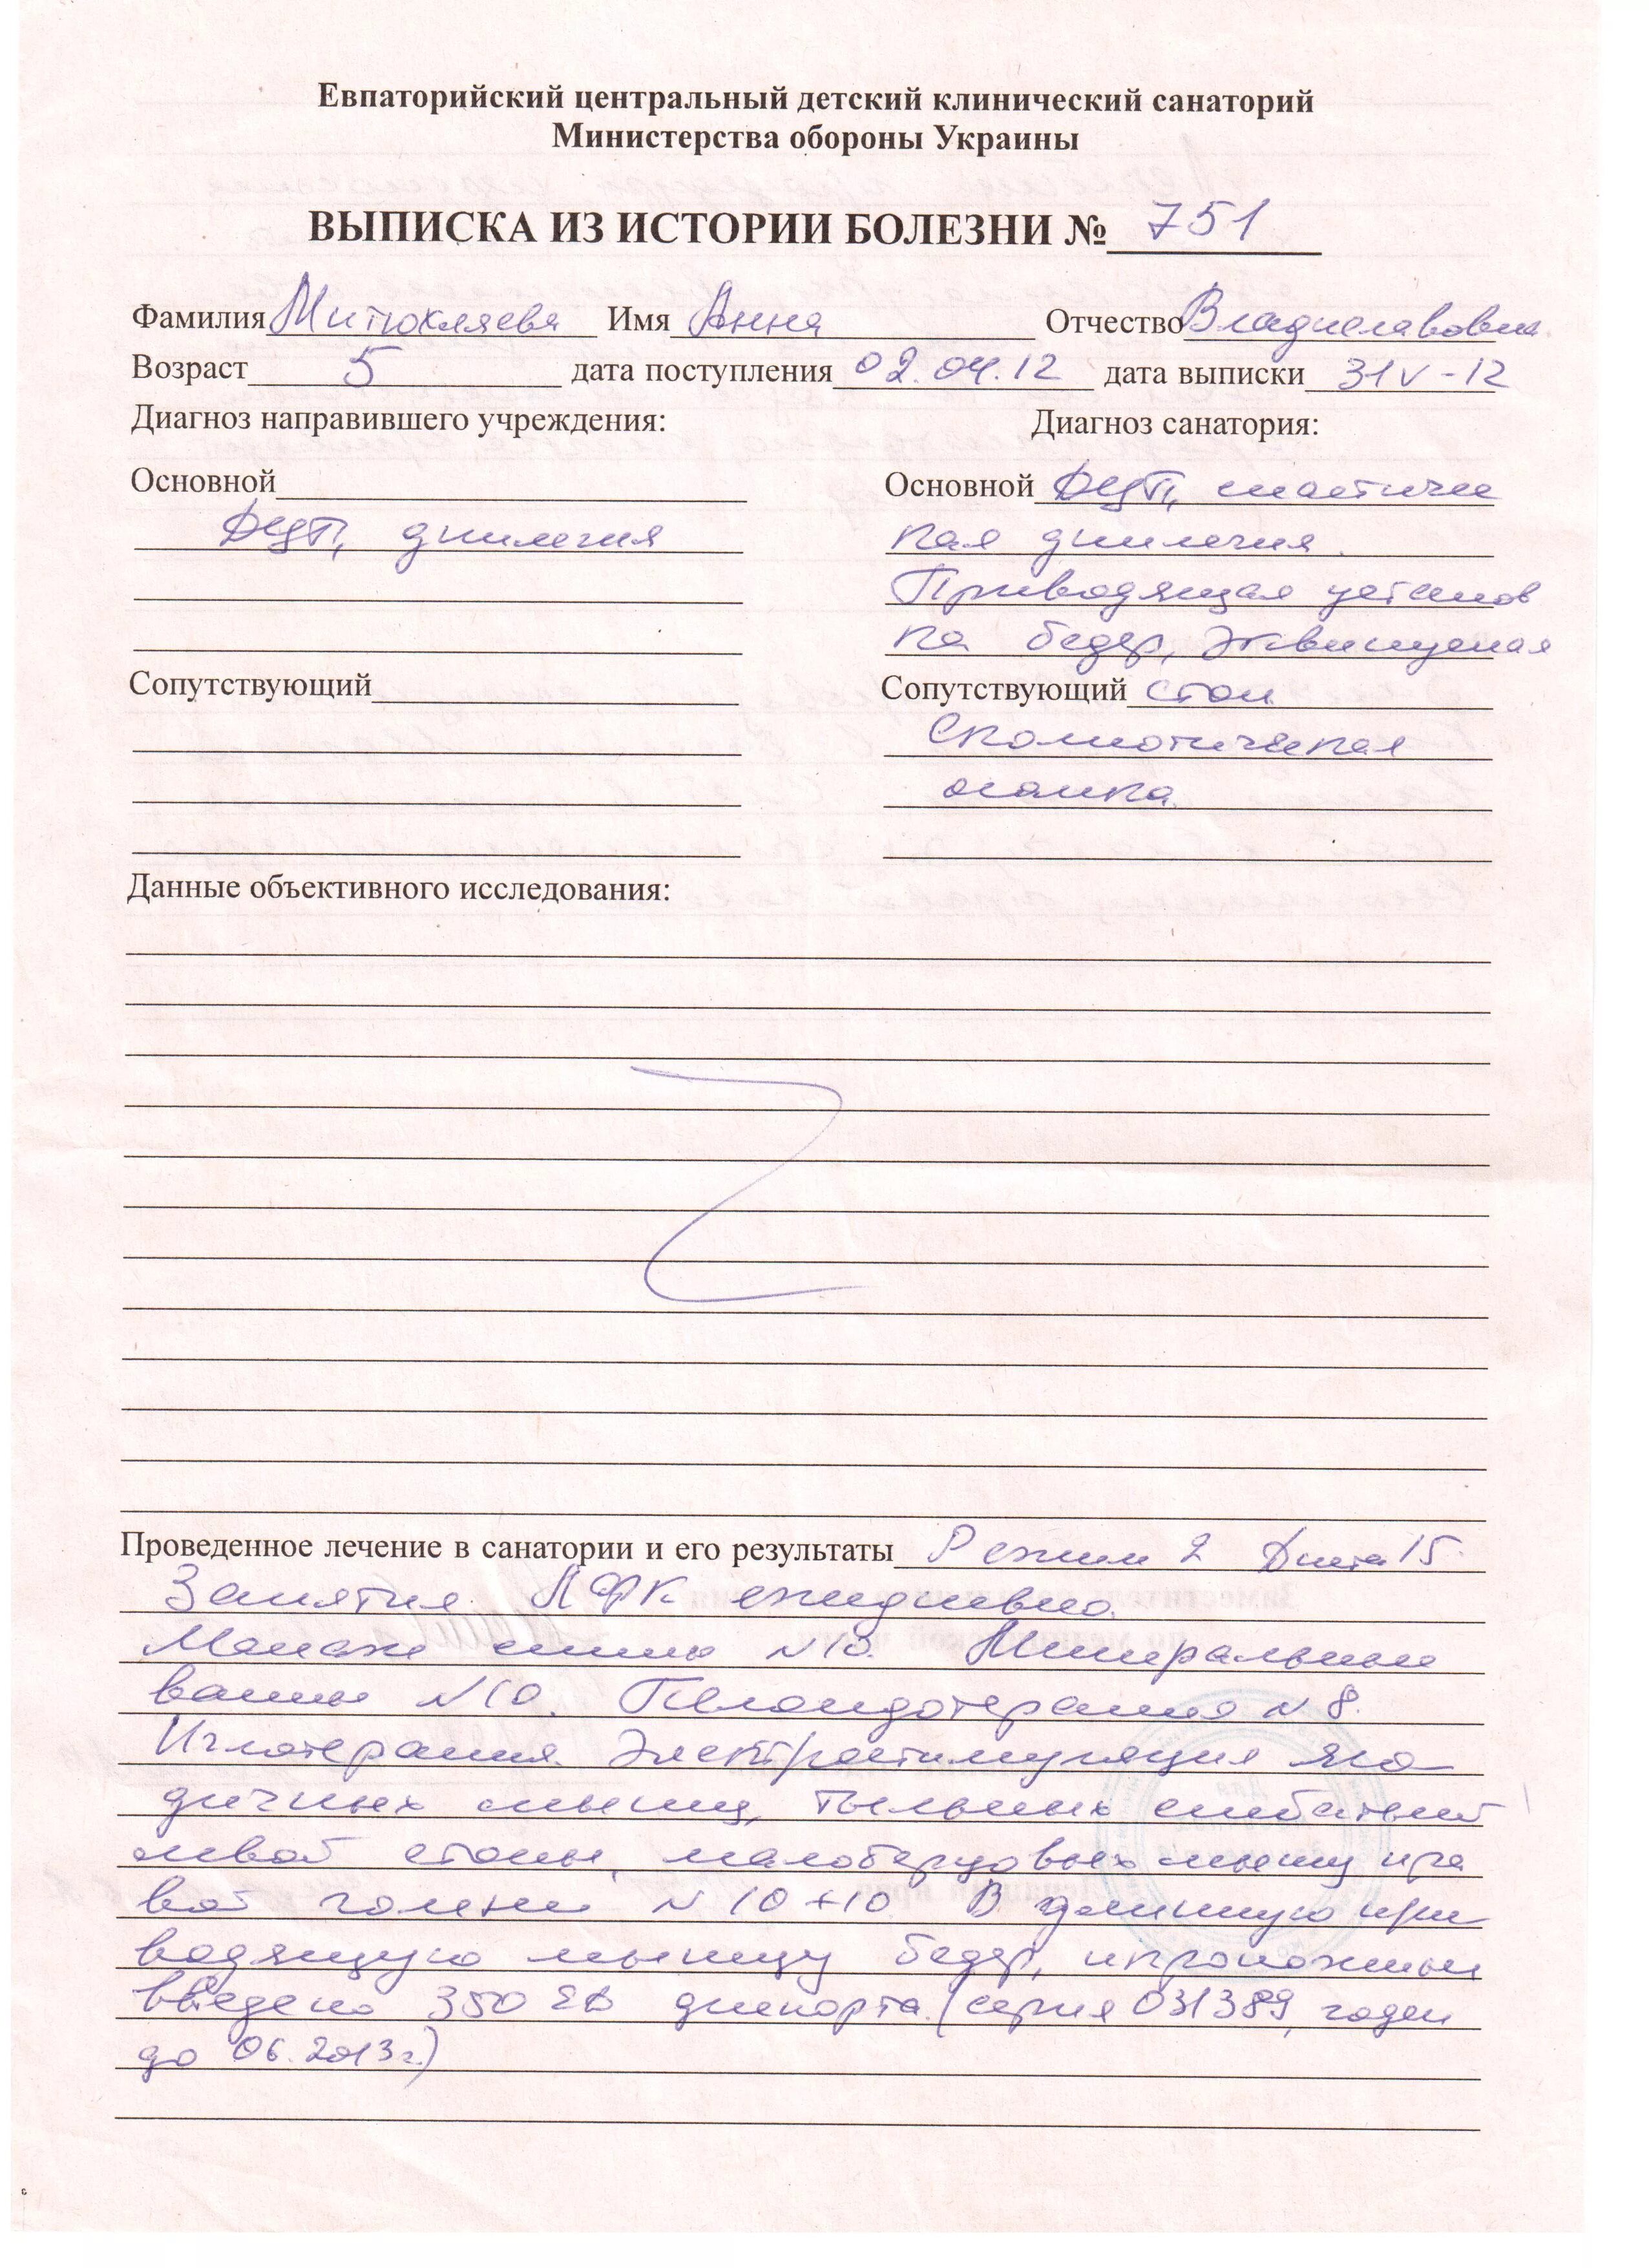 Евпаторийский центральный детский клинический санаторий
Министерства обороны Украины
ВЫПИСКА ИЗ ИСТОРИИ БОЛЕЗНИ № 751
Фамилия Митюкляева Имя Анна Отчество Владиславовна
Возраст 5 дата поступления 02.04.12 дата выписки 31 V - 12
Диагноз направившего учреждения: Диагноз санатория:
Основной Основной ДЦП, спастичес
ДЦП, диплегия кая диплегия.
Приводящая установ
ка бедер, эквинусная
Сопутствующий Сопутствующий стоп
Сколиотическая
осанка.
Данные объективного исследования:
Проведенное лечение в санатории и его результаты Режим 2 Диета 15.
Занятия ЛФК ежедневно.
Массаж спины N10. Минеральные
ванны N10. Пелоидотерапия N8.
Иглотерапия. Электростимуляция яго-
дичных мышц, тыльных сгибателей
левой стопы, малоберцовых мышц пра
вой голени N 10+10 В длинную при
водящую мышцу бедер, икроножные
введено 350 ЕД диспорта (серия 031389, годен
до 06.2013г.)